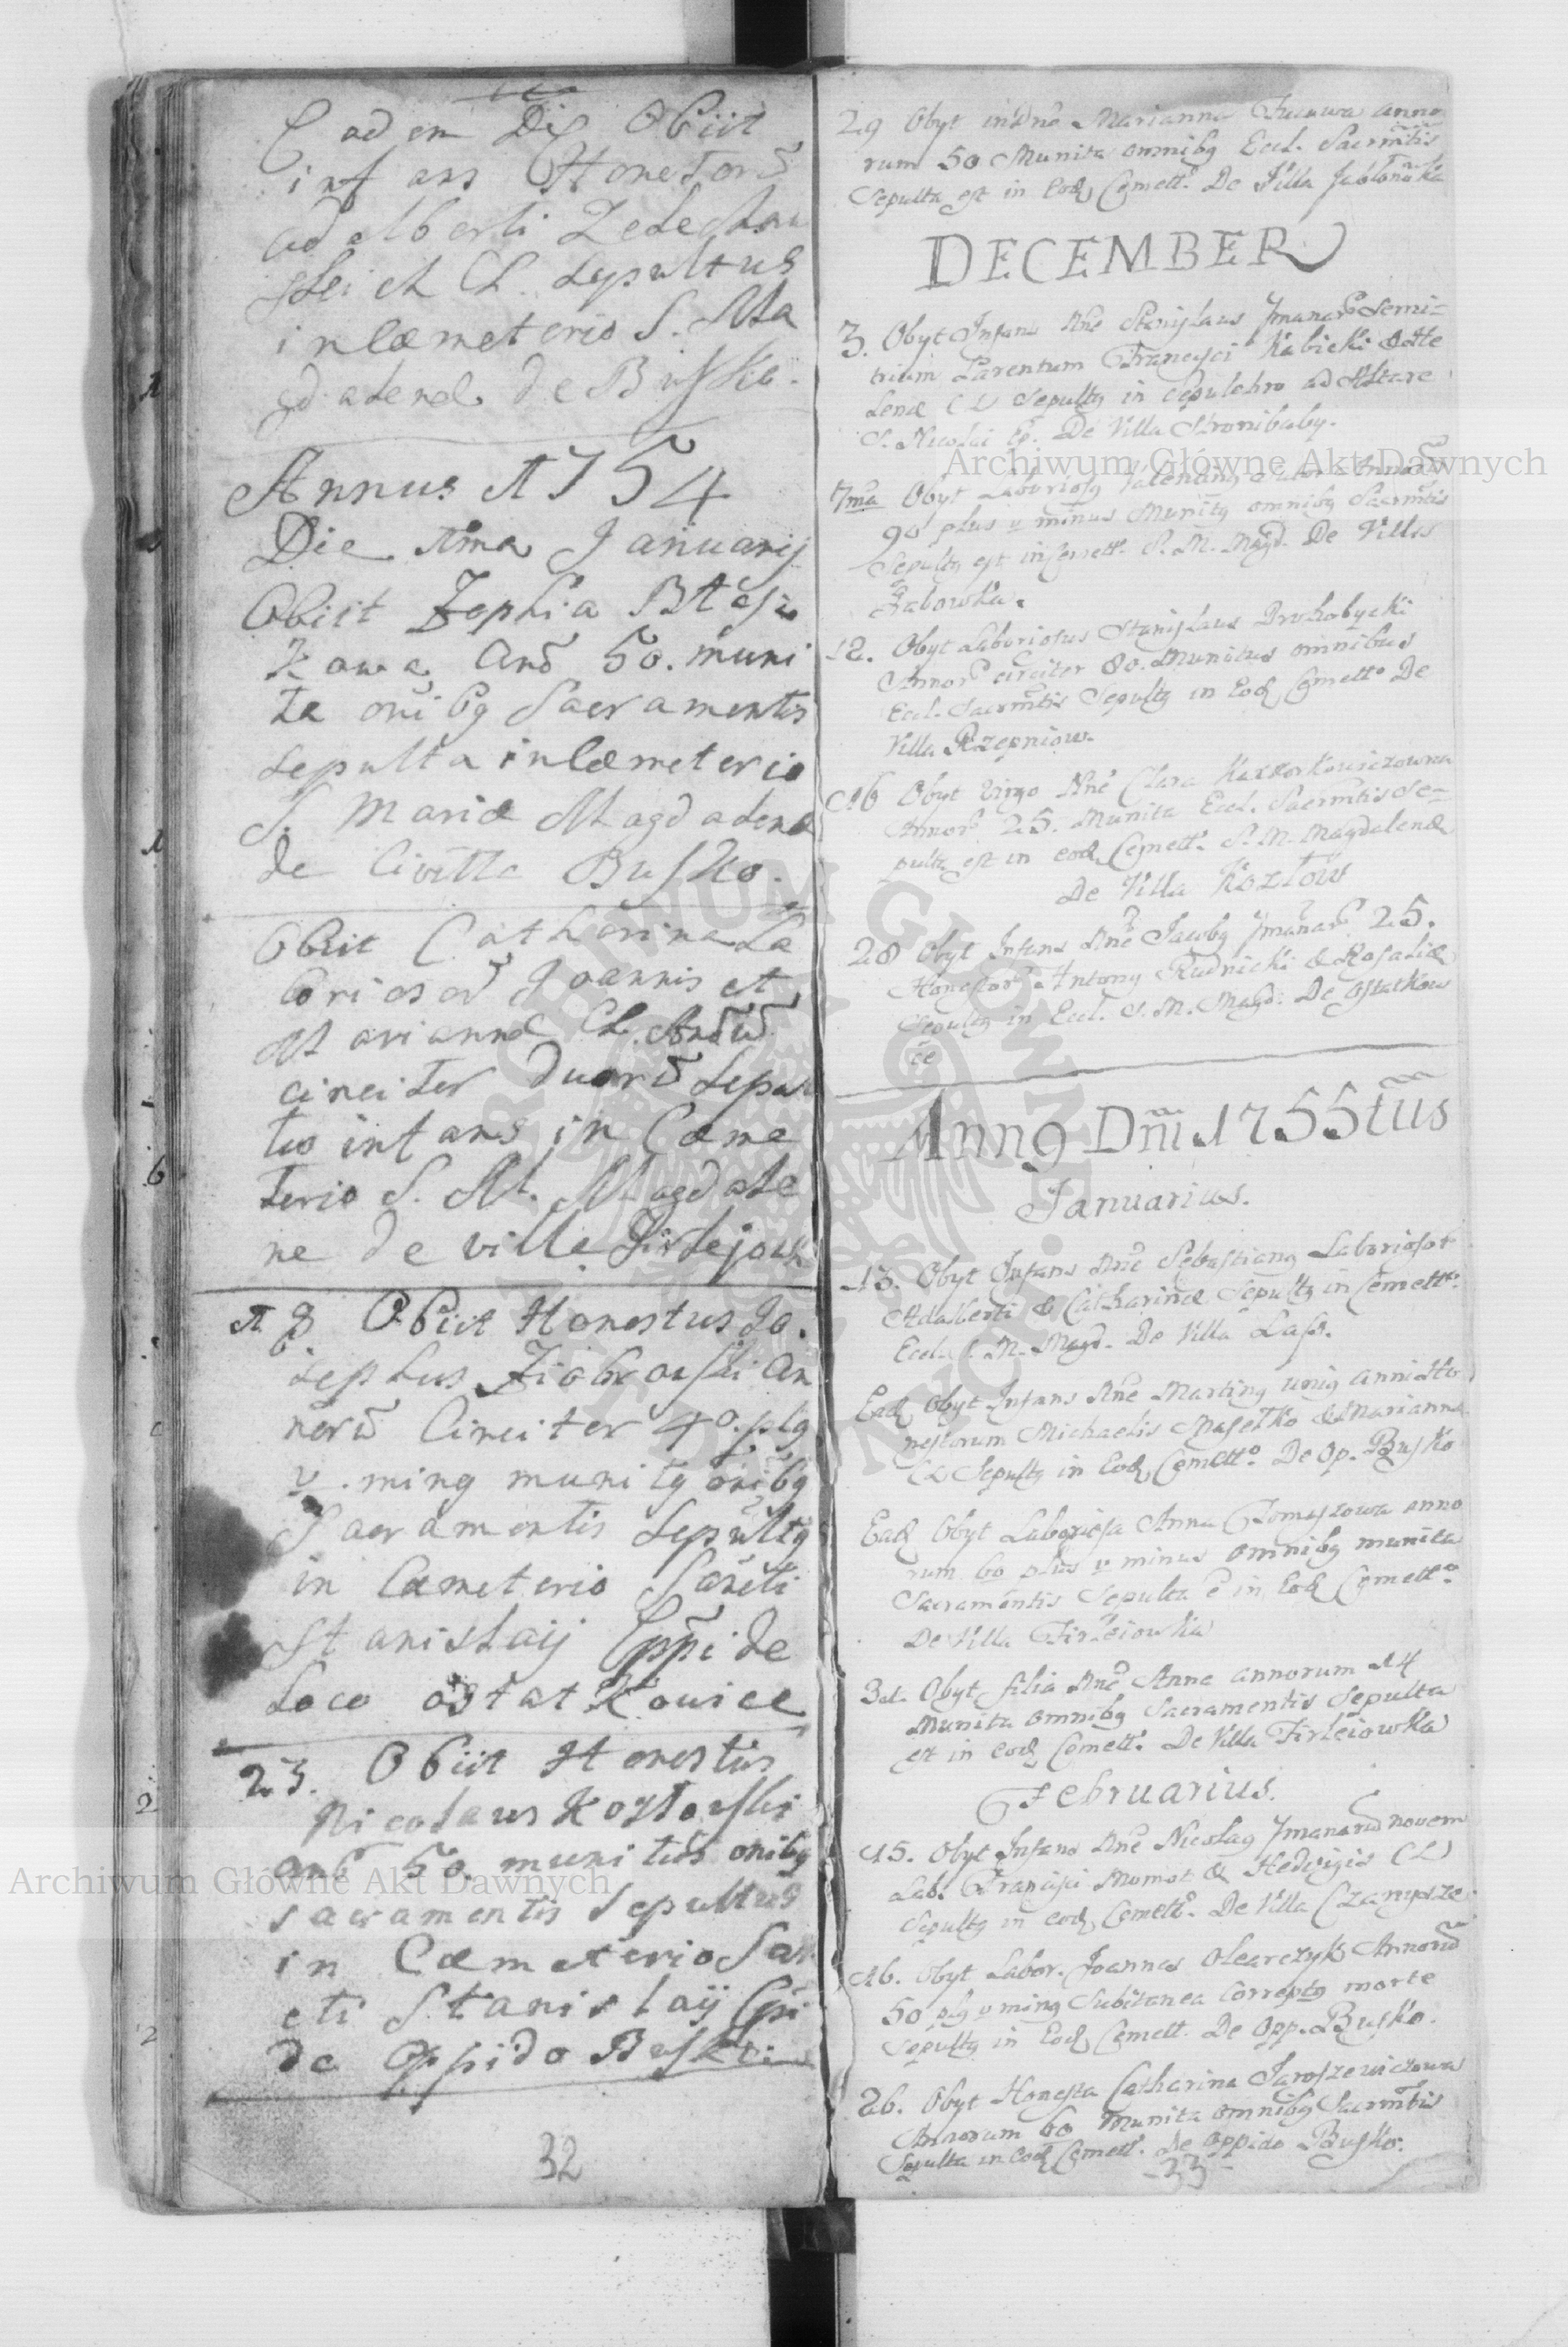 Eadem Die Obiit
infans Honestorū
Adalberti Zelechow
ski et CL. Sepultus
in Cœmeterio S. Ma
gdalenæ de Busko.
Annus 1754
Die 1ma Januarij
Obiit Zophia
zowa Anō 50. muni
ta onibg Sacramentis
Sepulta in Cœmeterio
S. Mariæ Magdalenæ
de Civitte Busko.
Obiit Catharina La
boriosorū Joannis et
Mariannæ CL. Anōrū
circiter duorū Sepul
tus infans in Cœme
terio S. M. Magdale
ne de ville Firlejowk
18 Obiit Honestus Jo.
sephus Ziobrowski An
norū Circiter 40. plg
v. ming munitg onibg
Sacramentis Sepultg
in Cœmeterio Sancti
Stanislaij Eppi de
Loco ostatkowice
23. Obiit Honestus
Nicolaus Kozlowski
Anō 50. munitus onibg
sacramentis Sepultus
in Cœmeterio San
cti Stanislaij Epi
de Oppido Buski
32
29 Obyt in Dnō Marianna anno
rum 50 Munita omnibg Eccl. Sacrmtis
Sepulta est in Eod Cemett: De Villa Jabłonuka
DECEMBER
3. Obyt Infans Nnē Stanislaus Septi-
trium Parentum Francisci Kabicki & He
lenæ CL Sepultg in Sepulchro ad Altare
S. Nicolai Ep. De Villa Stronibaby.
7ma Obyt Laboriosg Valenting Annorū
90 plus v minus Munitg omnibg Sacrmtis
Sepultg est in Cemett. S. M. Magd. De Villa
Rabowka.
12. Obyt Laboriosus Stanislaus Drohobycki
Annor circiter 80. Munitus omnibus
Eccl. Sacrmtis Sepultg in Eod Cemett. De
Villa Rzepniow.
16 Obyt Virgo Nnē Clara
Annor 25. Munita Eccl. Sacrmtis Se-
pulta est in eod Cemett. S. M. Magdalenæ
De Villa Kozłow
28 Obyt Infans Nnē Jacobg 25.
Honestor Antony Rudnicki & Rosaliæ
Sepultg in Eccl. S. M. Magd: De Ostatkow
ce
Anng Dni 1755tus
Januarius.
13. Obyt Infans Nnē Sebastiang Laboriosor
Adalberti & Catharinæ Sepultg in Cemett:
Eccl. S. M. Magd. De Villa
Ead Obyt Infans Nnē Marting unig anni Ho
nestorum Michaelis Masełko & Marianna
CL Sepultg in Eod Cemett: De Op. Busko
Ead Obyt Laboriosa Anna Tomaszowa anno
rum 60 plus v minus omnibg munita
Sacramentis Sepulta ē in Eod Cemett:
De Villa Firleiowka
31. Obyt filia Nnē Anna annorum 14
Munita omnibg Sacramentis Sepulta
est in eod Cemett: De Villa Firleiowka
Februarius.
15. Obyt Infans Nnē Nicolag novem
Lab. Francisci Momot & Hedvigis CL
Sepultg in eod Cemett: De Villa
16. Obyt Labor. Joannes Olearczyk Annorū
50 plg v ming Subitanea Correptg morte
Sepultg in Eod Cemett. De Opp. Busko.
26. Obyt Honesta Catharina Jaroszewiczowa
Annorum 60 munita omnibg Sacrmtis
Sepulta in eod Cemett. De oppido Busko.
-33-
Archiwum Główne Akt Dawnych
Archiwum Główne Akt Dawnych